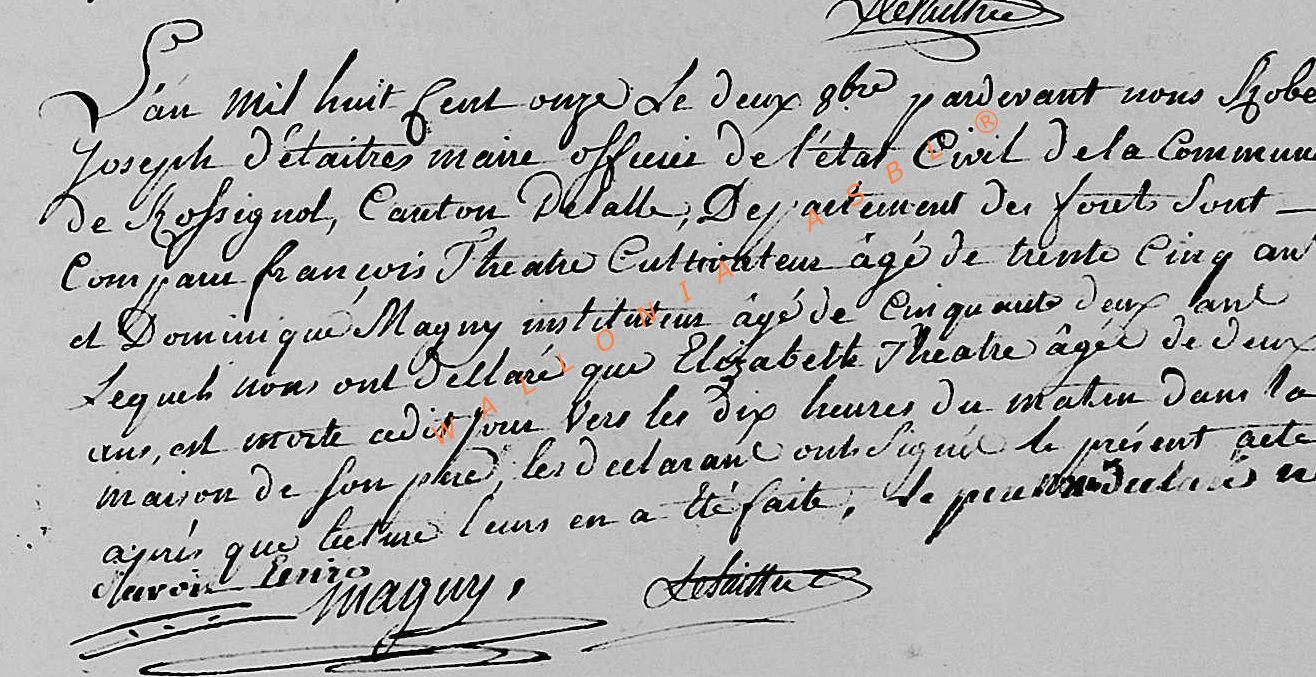 L'an mil huit cent onze le deux 8bre pardevant nous Robe
Joseph détaitres maire officier de l'état Civil de la Commune
de Rossignol, Canton detalle, Departement des forets sont
Comparu françois Theatre Cultivateur âgé de trente Cinq an
et Dominique Magny instituteur âgé de Cinquante deux ans
Lequels nous ont dellaré que Elizabeth Theatre âgée de deux
ans, est morte cedit jour vers les dix heures du matin dans la
maison de son pere, les declarant ont signé le présent acte
après que lecture leurs en a été faite, le pere declaré n
savoir Ecrire
Magny
WALLONIA ASBL ®